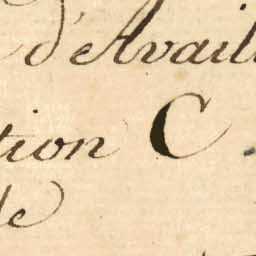 d'Avail
tion C
de